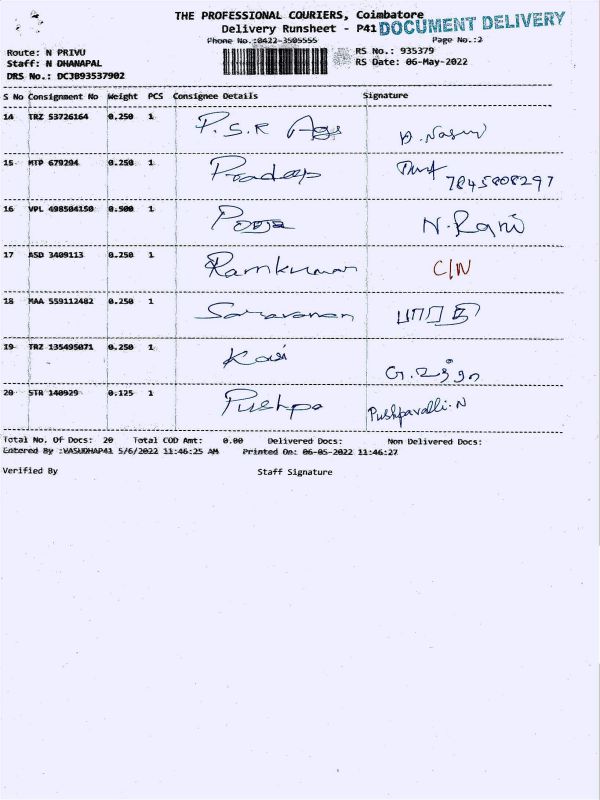 THE PROFESSIONAL COURIERS, Coimbatore
Delivery Runsheet - P41 DOCUMENT DELIVERY
Phone No.:0422-3505555 Page No.:2
Route: N PRIVU RS No.: 935379
Staff: N DHANAPAL RS Date: 06-May-2022
DRS No.: DCJB93537902
S No Consignment No Weight PCS Consignee Details Signature
14 TRZ 53726164 0.250 1 P.S.R Ags D. Nasar
15 MTP 679294 0.250 1 Pradeep 7845808297
16 VPL 498504150 0.500 1 Pooja N. Rani
17 ASD 3409113 0.250 1 Ramkumar C/N
18 MAA 559112482 0.250 1 Saravanan
19 TRZ 135495071 0.250 1 Kasi
20 STR 140929 0.125 1 Pushpa Pushpavalli.N
Total No. Of Docs: 20 Total COD Amt: 0.00 Delivered Docs: Non Delivered Docs:
Entered By :VASUDHAP41 5/6/2022 11:46:25 AM Printed On: 06-05-2022 11:46:27
Verified By Staff Signature